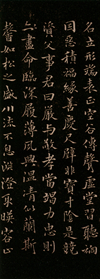 名立形端表正空谷傳聲虛堂習聽禍
因惡積福緣善慶尺璧非寶寸陰是競
資父事君曰嚴與敬孝當竭力忠則
盡命臨深履薄夙興溫清似蘭斯
馨如松之盛川流不息淵澄取暎容止